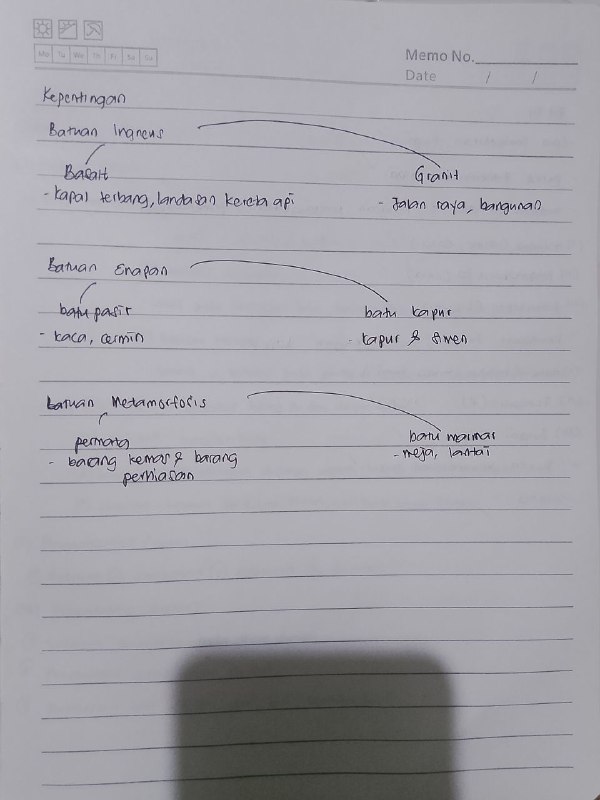 Mo Tu We Th Fr Sa Su
Memo No.
Date / /
Kepentingan
Batuan Igneus
Basalt Granit
- kapal terbang, landasan kereta api - Jalan raya, bangunan
Batuan Enapan
batu pasir batu kapur
- kaca, cermin - kapur & simen
Batuan Metamorfosis
permata batu marmar
- barang kemas & barang - meja, lantai
perhiasan